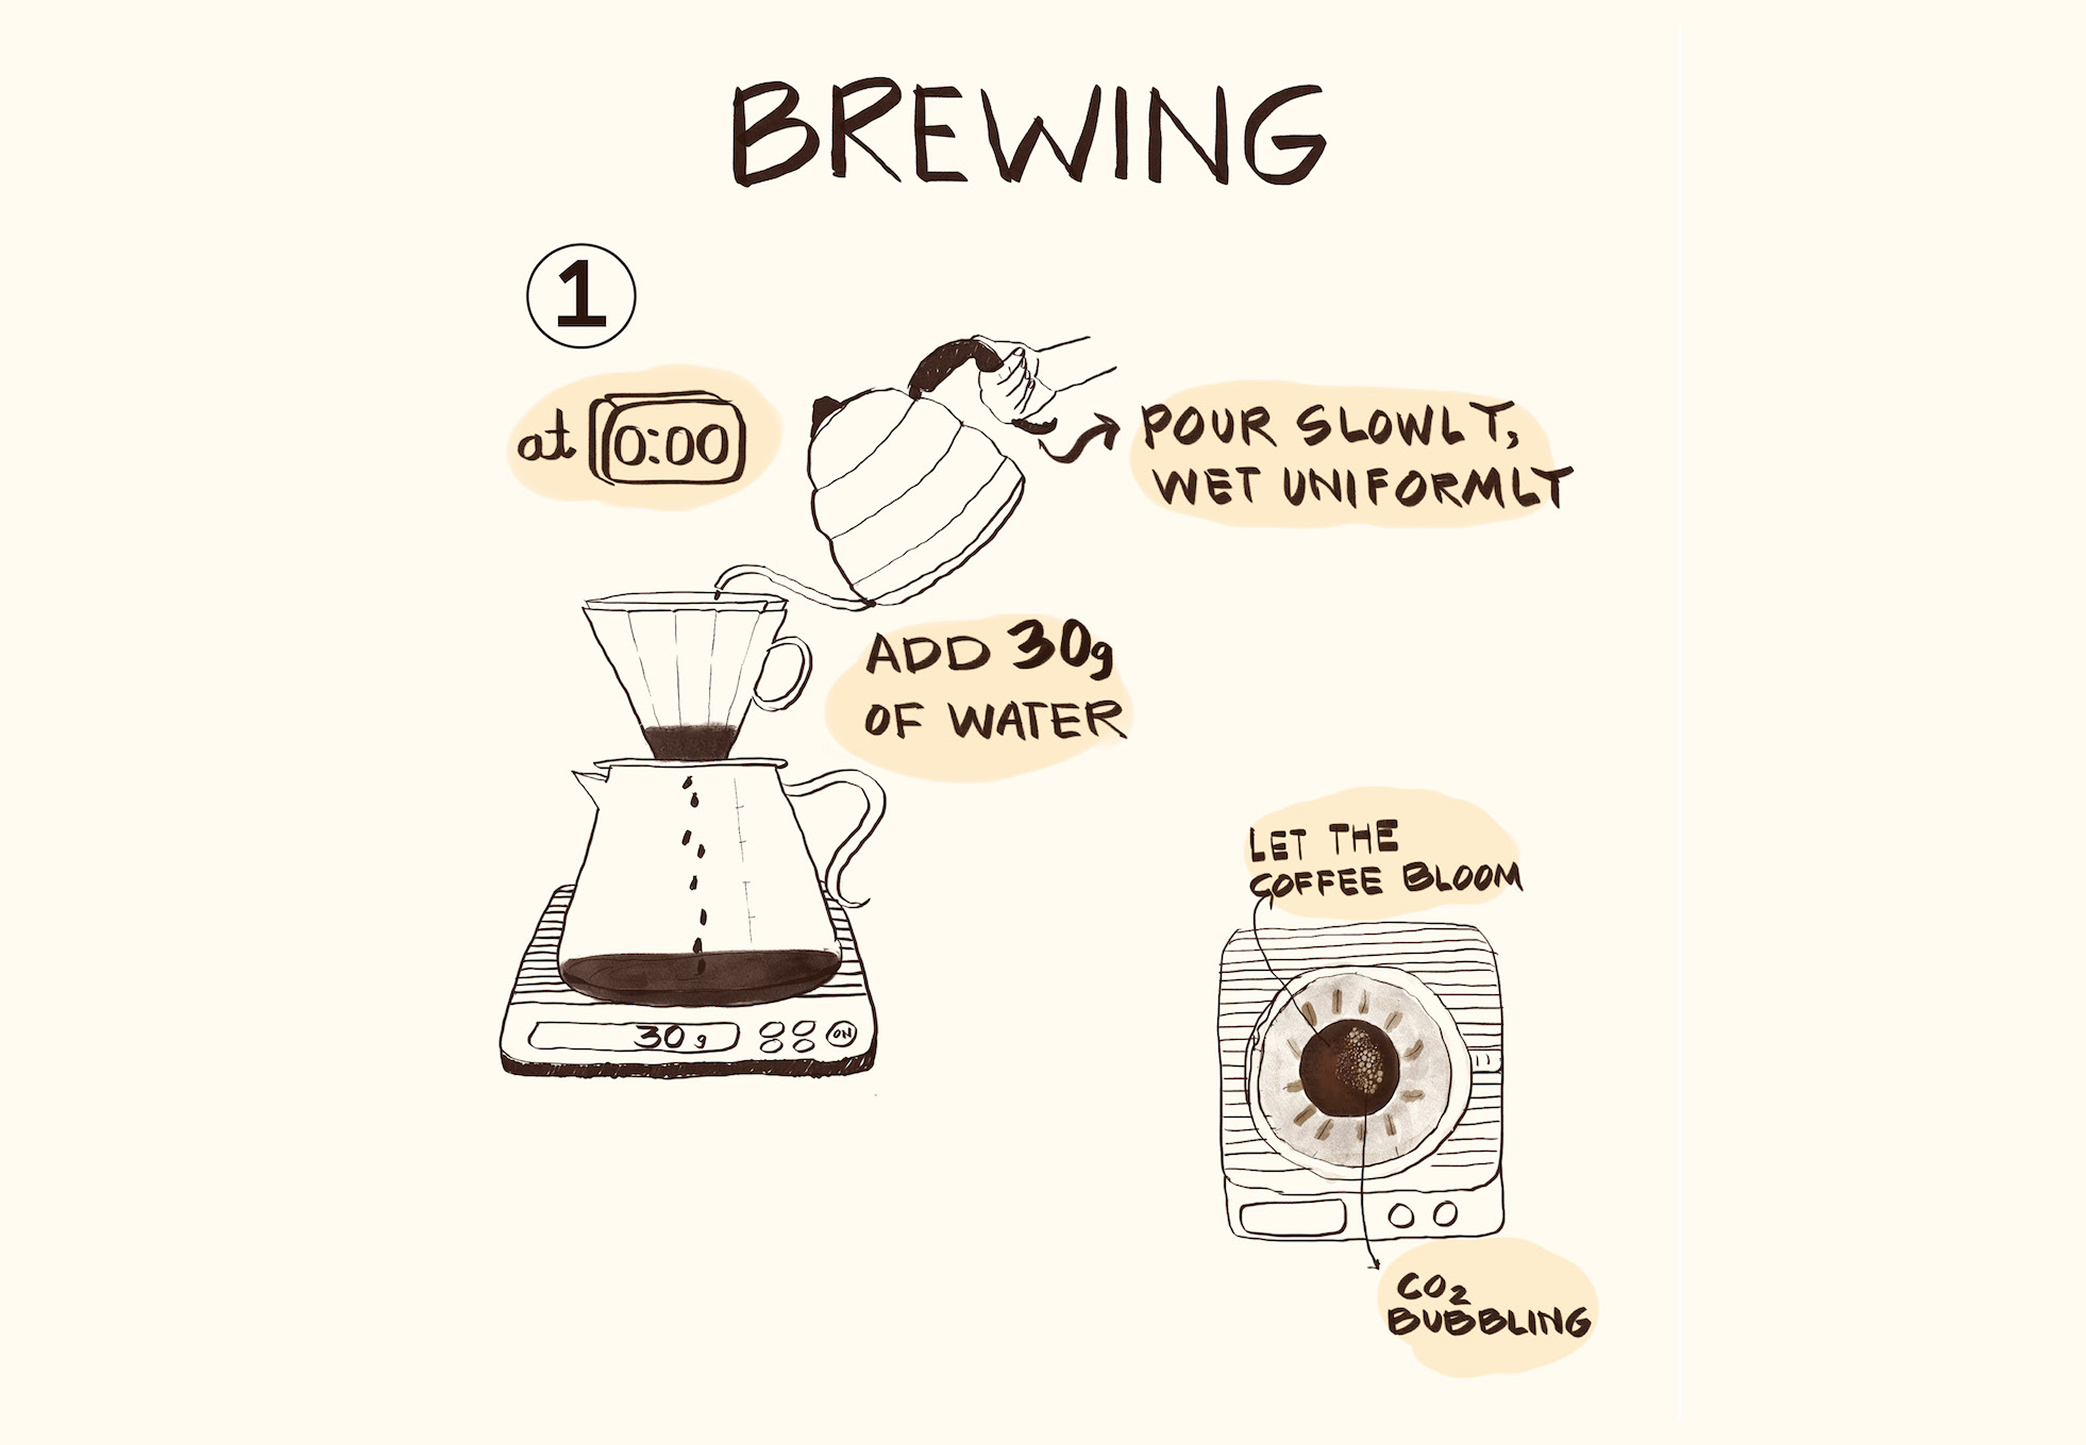 BREWING
1
at 0:00
POUR SLOWLY,
WET UNIFORMLY
ADD 30g
OF WATER
30 g
ON
LET THE
COFFEE BLOOM
CO₂
BUBBLING